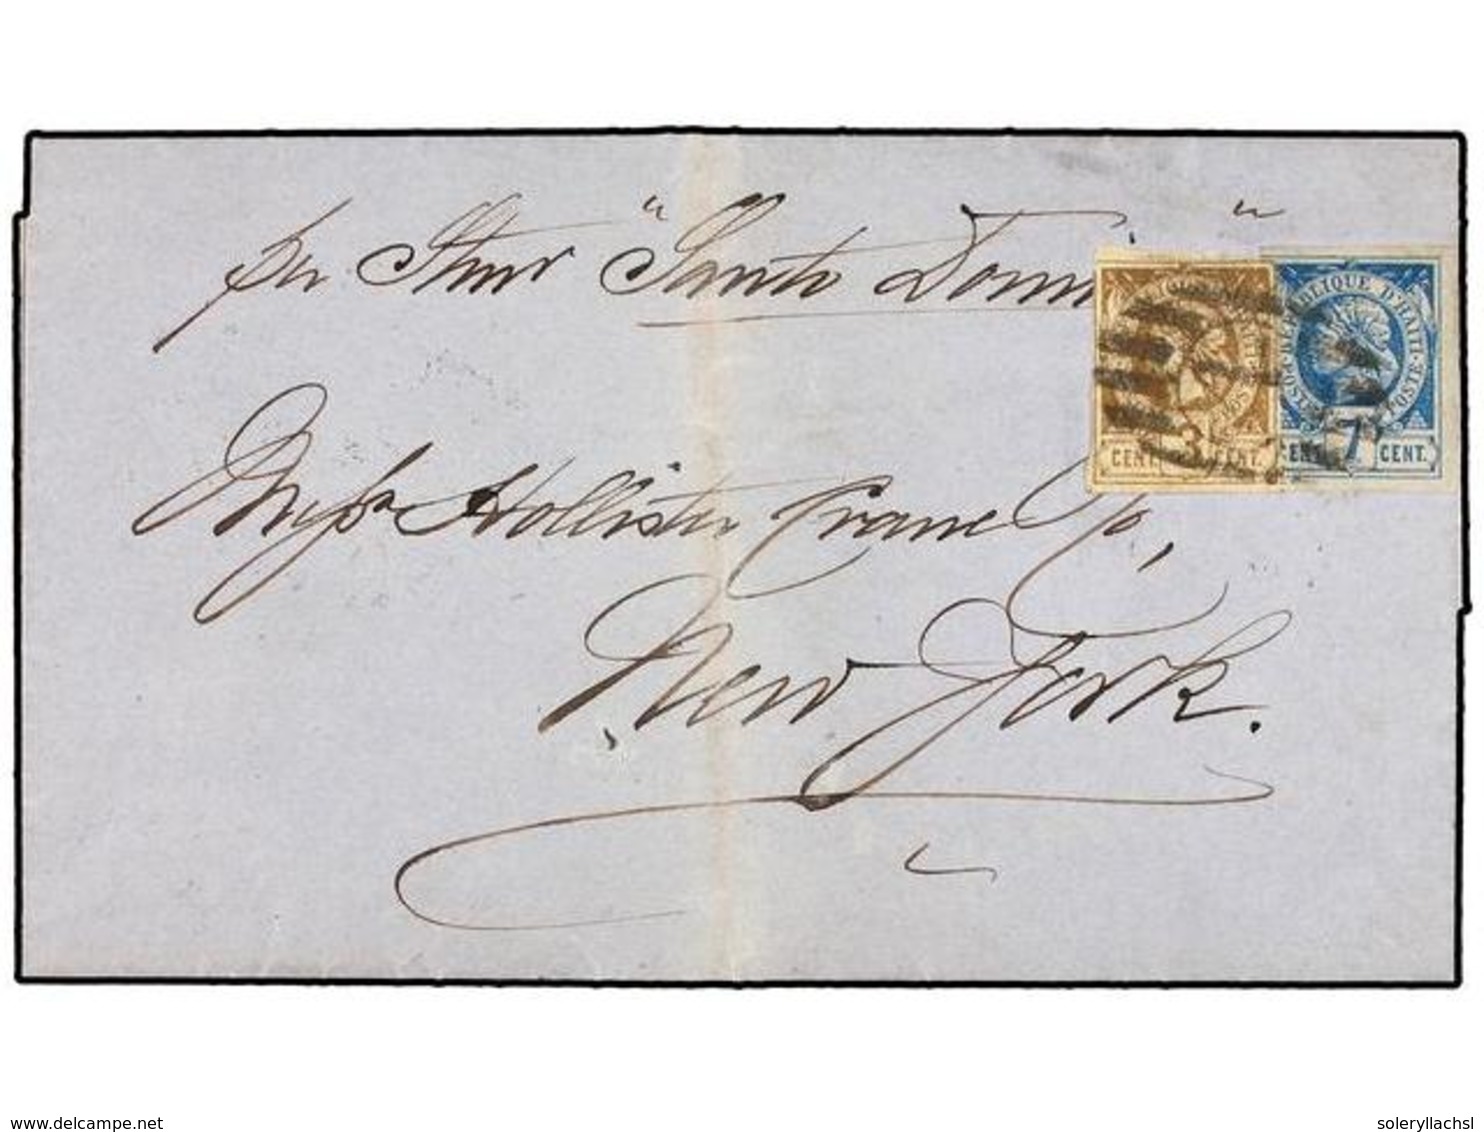 per Stmr "Santo Domi "
RÉPUBLIQUE D'HAITI · POSTE
CENT. 3 CENT.
CENT. 7 CENT.
Messrs Hollister Crane Co,
New York.
www.delcampe.net
soleryllachsl